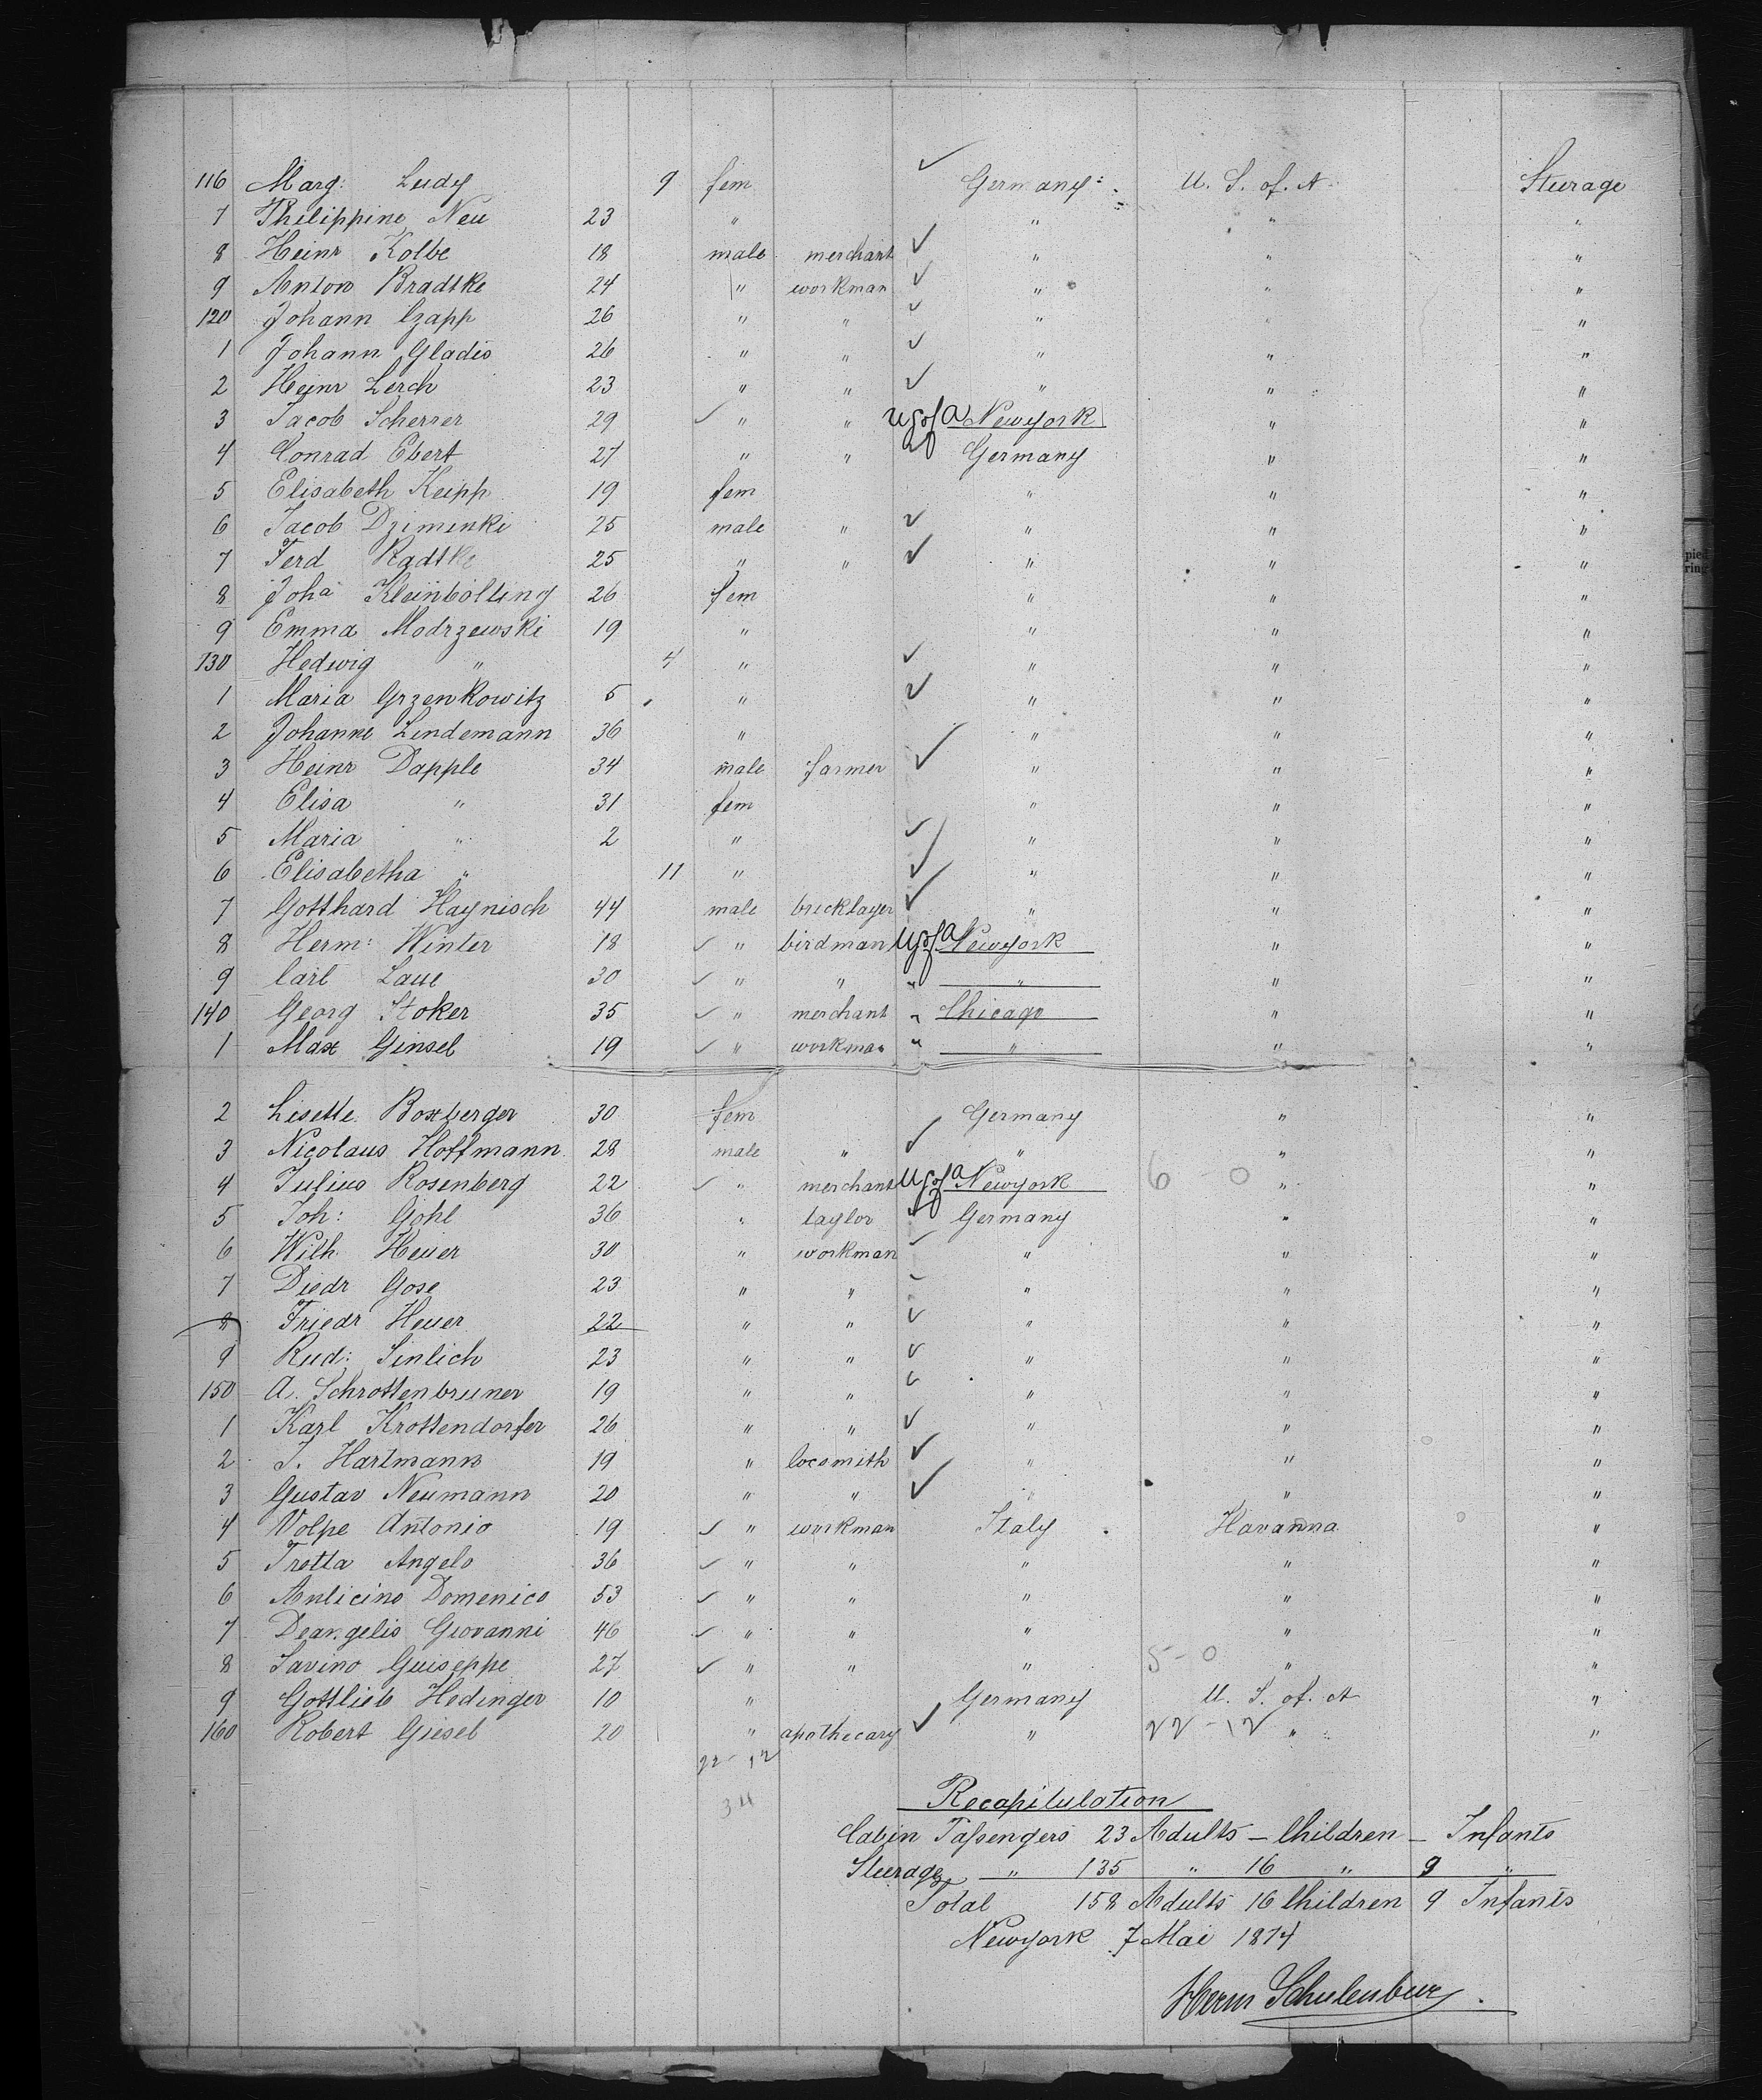 116 Marg: Ludy 9 fem Germany U. S. of. A. Steurage
7 Philippine Neu 23 " " " "
8 Heinr Kolbe 18 male merchant " " "
9 Anton Bradtke 24 " workman " " "
120 Johann Czapp 26 " " " " "
1 Johann Gladis 26 " " " " "
2 Heinr Lerch 23 " " " " "
3 Jacob Scherrer 29 " " U S of A Newyork " "
4 Conrad Ebert 27 " " Germany " "
5 Elisabeth Keipp 19 fem " " "
6 Jacob Dziminki 25 male " " " "
7 Ferd Radtke 25 " " " " "
8 Joha Kleinbölting 26 fem " " "
9 Emma Modrzewski 19 " " " "
130 Hedwig " 4 " " " "
1 Maria Grzenkowitz 5 " " " "
2 Johanne Lindemann 36 " " " "
3 Heinr Dapple 34 male farmer " " "
4 Elisa " 31 fem " " "
5 Maria " 2 " " " "
6 Elisabetha " 11 " " " "
7 Gotthard Haynisch 44 male bricklayer " " "
8 Herm: Winter 18 " birdman U S of A Newyork " "
9 Carl Laue 30 " " " " " "
140 Georg Stoker 35 " merchant " Chicago " "
1 Max Ginsel 19 " workman " " " "
2 Lisette Boxberger 30 fem Germany " "
3 Nicolaus Hoffmann 28 male " " " "
4 Julius Rosenberg 22 " merchant U S of A Newyork 6 - 0 " "
5 Joh: Gohl 36 " taylor Germany " "
6 Wilh. Heuer 30 " workman " " "
7 Diedr Gose 23 " " " " "
8 Friedr Heuer 22 " " " " "
9 Rud: Sinlich 23 " " " " "
150 A. Schrottenbruner 19 " " " " "
1 Karl Krottendorfer 26 " " " " "
2 J. Hartmann 19 " locsmith " " "
3 Gustav Neumann 20 " " " " "
4 Volpe Antonio 19 " workman Italy Havanna "
5 Trotta Angelo 36 " " " " "
6 Anlicino Domenico 53 " " " " "
7 Deangelis Giovanni 46 " " " " "
8 Savino Guiseppe 27 " " " 5 - 0 " "
9 Gottlieb Hedinger 10 " Germany U. S. of. A "
160 Robert Giesel 20 " apothecary " 22 - 12 " "
22 - 12
34
Recapitulation
Cabin Passengers 23 Adults – Children – Infants
Steurage " 135 " 16 " 9 "
Total 158 Adults 16 Children 9 Infants
Newyork 7 Mai 1874
Herm Schulenburg